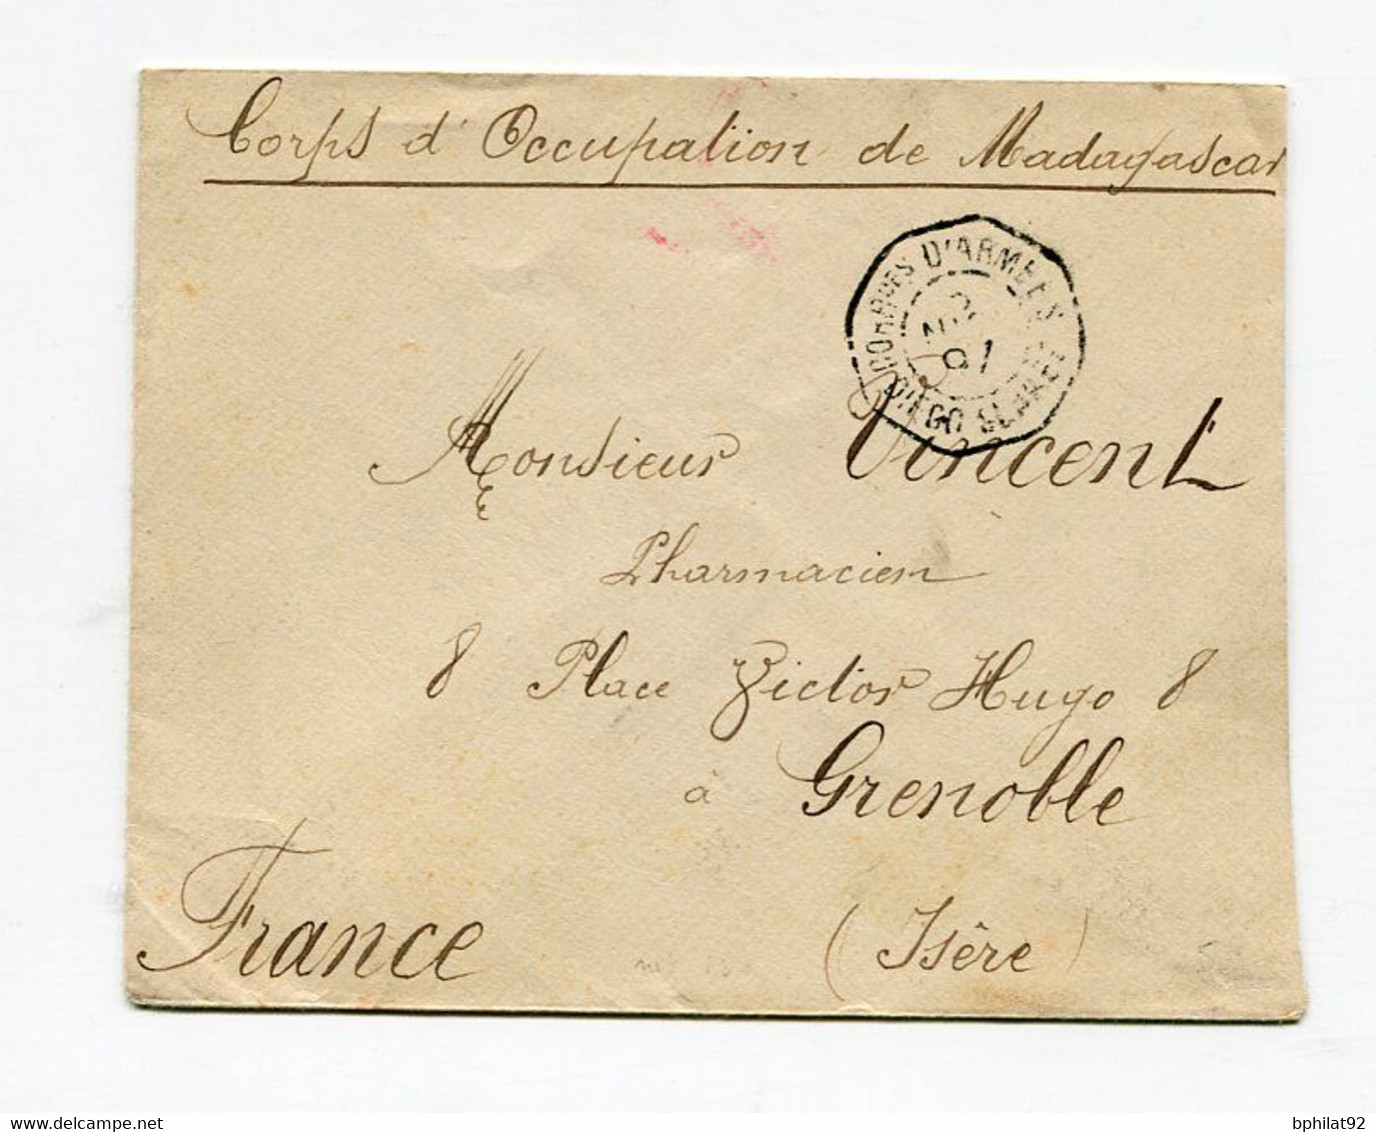 Corps d'Occupation de Madagascar
CORR DES D'ARMEES
91
DIEGO SUAREZ
Monsieur Vincent
Pharmacien
8 Place Victor Hugo 8
à Grenoble
France (Isère)
delcampe.net
bphilat92